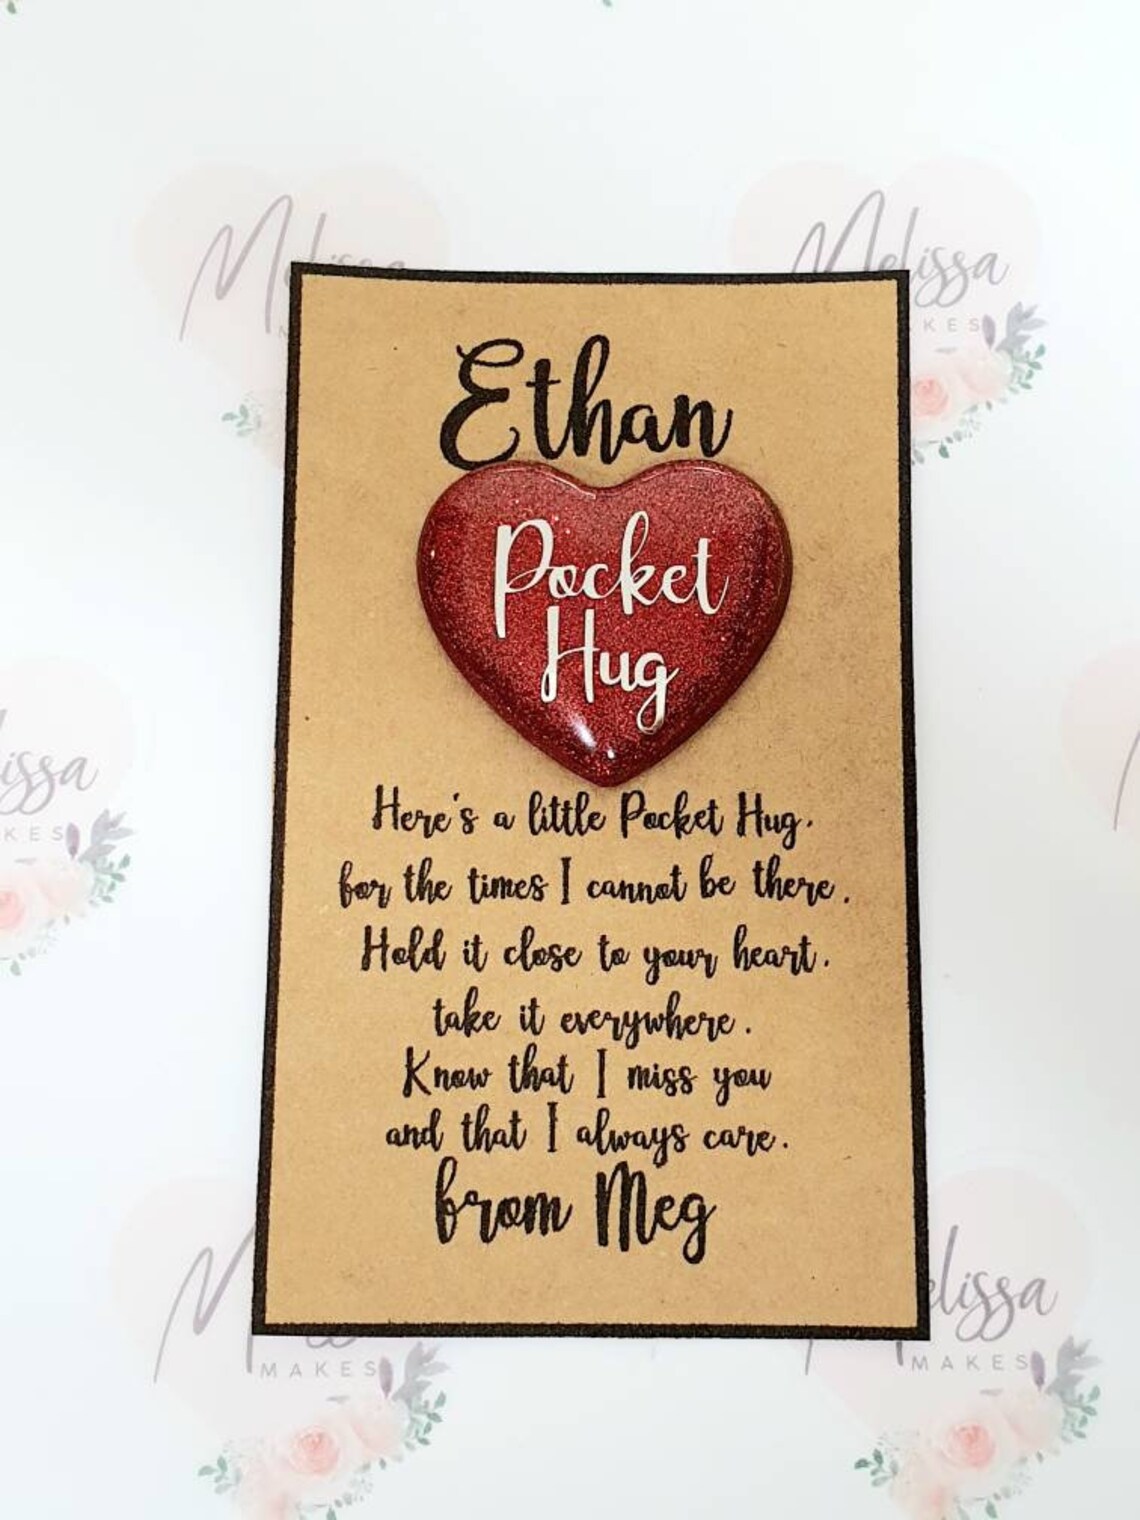 Melissa
MAKES
Ethan
Pocket
Hug
Here's a little Pocket Hug.
for the times I cannot be there.
Hold it close to your heart.
take it everywhere.
Know that I miss you
and that I always care.
from Meg
issa
KES
elissa
MAKES
MAKES